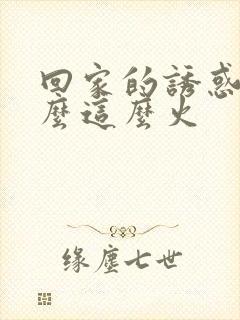 回家的誘惑
麼這麼火
缘塵七世